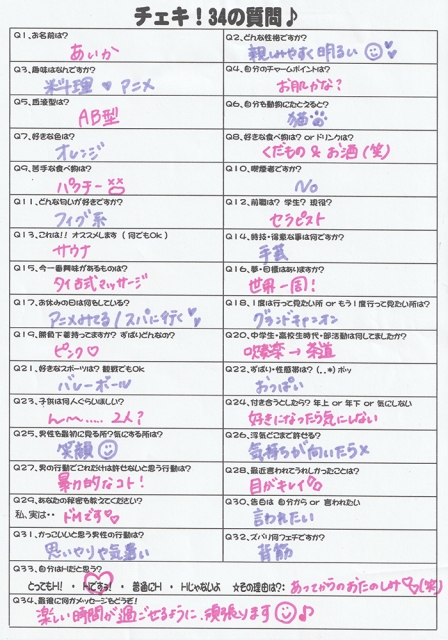 チェキ！34の質問♪
Q1、お名前は？
あいか
Q2、どんな性格ですか？
親しみやすく明るい
Q3、趣味はなんですか？
料理 ♥ アニメ
Q4、自分のチャームポイントは？
お肌かな？
Q5、血液型は？
AB型
Q6、自分を動物にたとえると？
猫
Q7、好きな色は？
オレンジ
Q8、好きな食べ物は？ or ドリンクは？
くだもの & お酒(笑)
Q9、苦手な食べ物は？
パクチー
Q10、喫煙者ですか？
No
Q11、どんな匂いが好きですか？
フィグ系
Q12、前職は？ 学生？ 現役？
セラピスト
Q13、これは!! オススメします（何でもOk）
サウナ
Q14、特技・得意な事は何ですか？
手芸
Q15、今一番興味があるものは？
タイ古式マッサージ
Q16、夢・目標はありますか？
世界一周！
Q17、お休みの日は何をしている？
アニメみてる/スパに行く♥
Q18、1度は行って見たい所 or もう1度行って見たい所？
グランドキャニオン
Q19、勝負下着持ってますか？ ずばりどんなの？
ピンク♡
Q20、中学生・高校生時代・部活動は何してましたか？
吹奏楽 → 茶道
Q21、好きなスポーツは？ 観戦でもOk
バレーボール
Q22、ずばり・性感帯は？（..*）ポッ
おっぱい
Q23、子供は何人ぐらいほしい？
ん〜‥‥‥2人？
Q24、付き合うとしたら？ 年上 or 年下 or 気にしない
好きになったら気にしない
Q25、男性を最初に見る所？気にする所は？
笑顔
Q26、浮気どこまで許せる？
気持ちが向いたら×
Q27、男の行動でこれだけは許せないと思う行動は？
暴力的なコト！
Q28、最近言われてうれしかったことは？
目がキレイ
Q29、あなたの秘密を教えてください？
私、実は・・ドMです
Q30、告白は 自分から or 言われたい
言われたい
Q31、かっこいいと思う男性の行動は？
思いやりや気遣い
Q32、ズバリ何フェチですか？
背筋
Q33、自分はHだと思う？
とってもH！ ・ Hですっ！ ・ 普通にH ・ Hじゃないよ ☆その理由は？: あってからのおたのしみ(笑)
Q34、最後に何かメッセージをどうぞ！
楽しい時間が過ごせるように、頑張ります♪